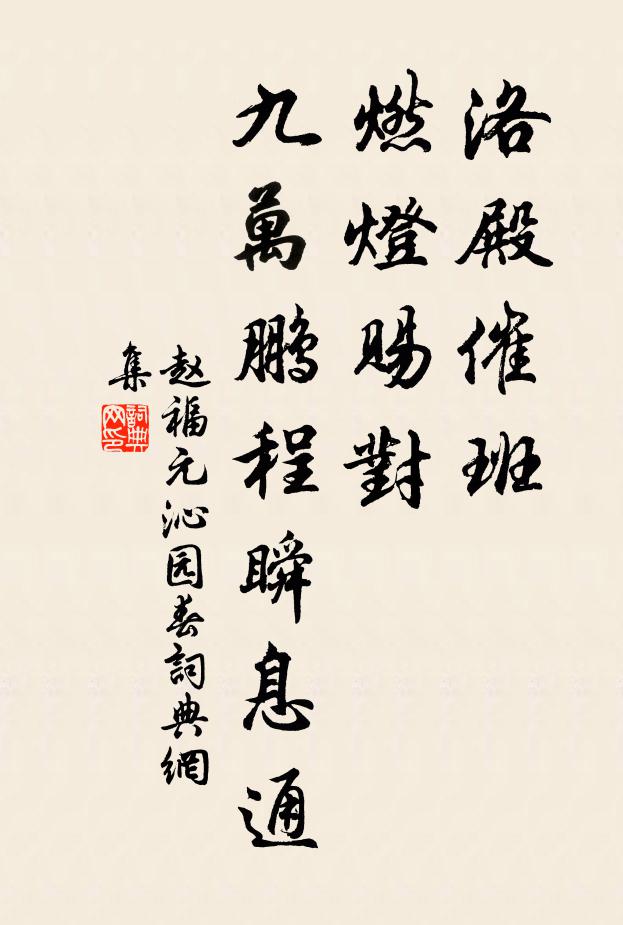 洛殿催班
燃燈賜對
九萬鵬程瞬息通
赵福元沁园春詞典網
集
詞典
网印